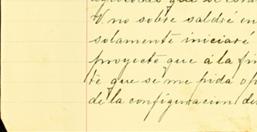 no sobre saldré in
solamente iniciaré
proyecto que á la fin
te que se me pida op
de la configuracion de